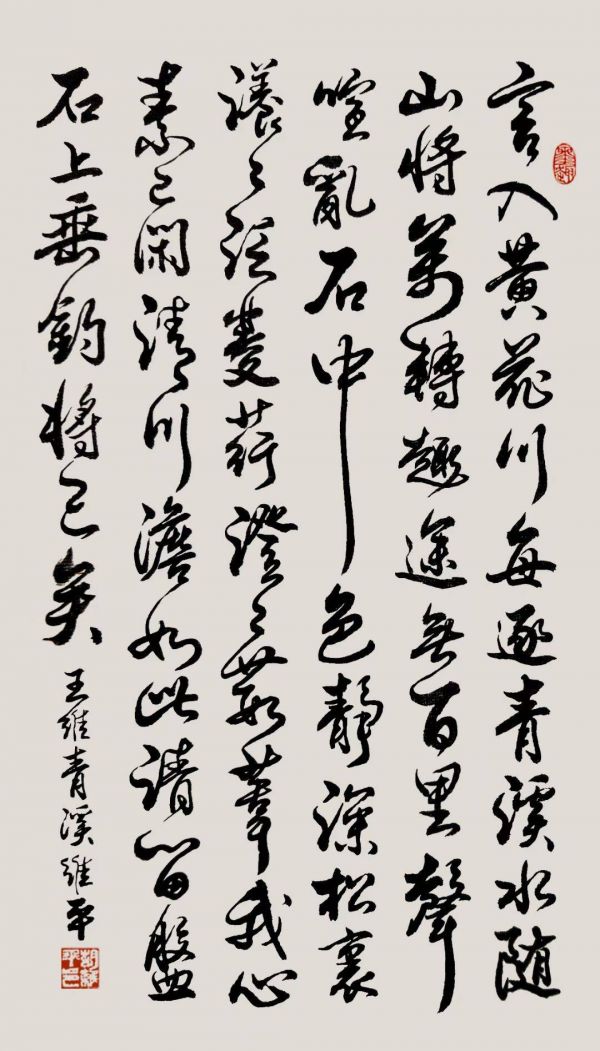 言入黃花川每逐青溪水随
山將萬轉趣途無百里聲
喧亂石中色靜深松裏
漾々泛菱荇澄々葭葦我心
素已閑清川澹如此請留盤
石上垂釣將已矣 王維青溪維平